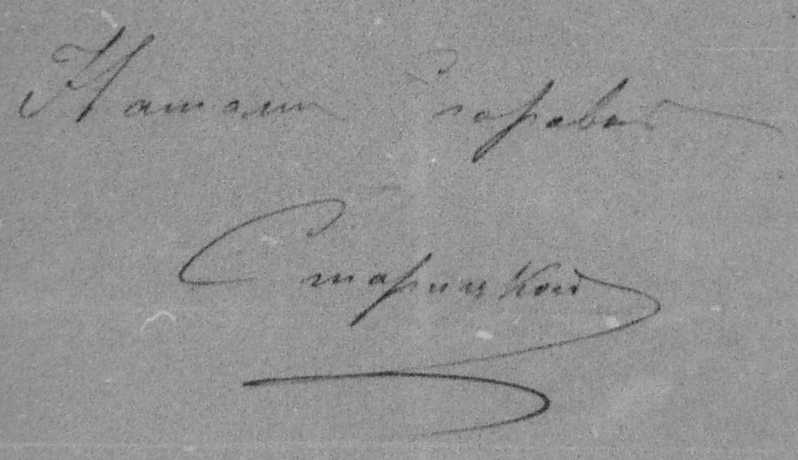 Наталии Егоровне
Старицкой